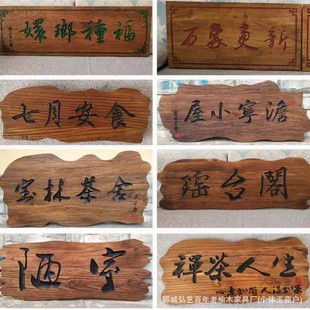 嬛瑯種福
万象更新
七月安食
屋小寧澹
宝林茶舍
瑶台閣
陋室
禪茶人生
郓城弘艺百年老榆木家具厂(个体工商户)